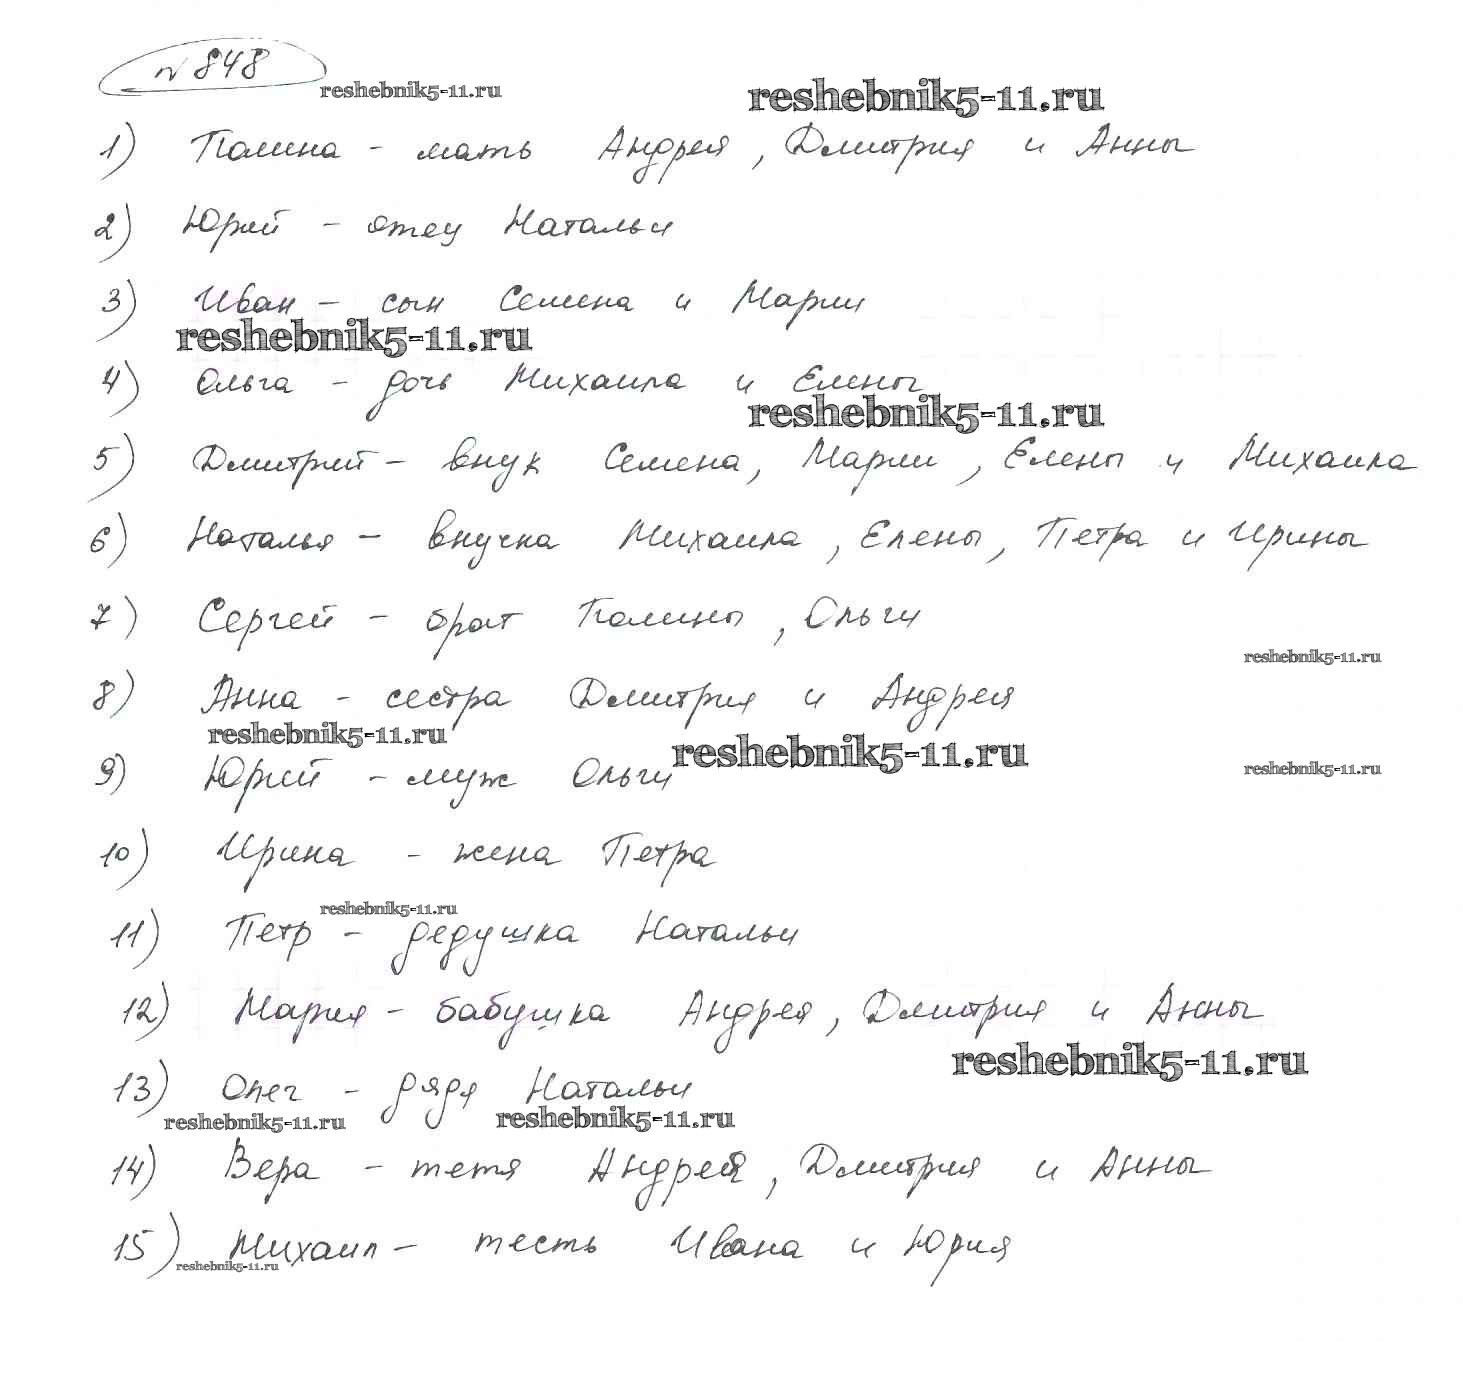 № 848
reshebnik5-11.ru
reshebnik5-11.ru
1) Полина - мать Андрея, Дмитрия и Анны
2) Юрий - отец Натальи
3) Иван - сын Семена и Марии
reshebnik5-11.ru
4) Ольга - дочь Михаила и Елены
reshebnik5-11.ru
5) Дмитрий - внук Семена, Марии, Елены и Михаила
6) Наталья - внучка Михаила, Елены, Петра и Ирины
7) Сергей - брат Полины, Ольги
reshebnik5-11.ru
8) Анна - сестра Дмитрия и Андрея
reshebnik5-11.ru
reshebnik5-11.ru
9) Юрий - муж Ольги
reshebnik5-11.ru
10) Ирина - жена Петра
reshebnik5-11.ru
11) Петр - дедушка Натальи
12) Мария - бабушка Андрея, Дмитрия и Анны
reshebnik5-11.ru
13) Олег - дядя Натальи
reshebnik5-11.ru
reshebnik5-11.ru
14) Вера - тетя Андрея, Дмитрия и Анны
15) Михаил - тесть Ивана и Юрия
reshebnik5-11.ru